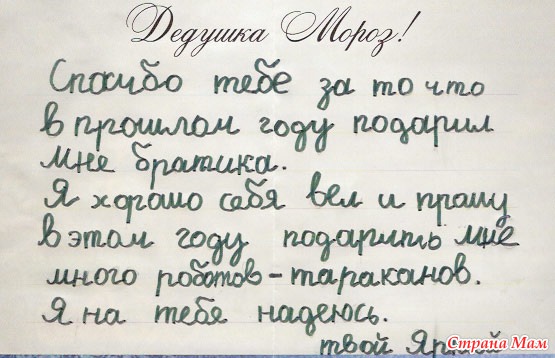 Дедушка Мороз!
Спасибо тебе за то что
в прошлом году подарил
мне братика.
Я хорошо себя вел и прашу
в этом году подарить мне
много роботов-тараканов.
Я на тебя надеюсь.
твой Яркий
Страна Мам